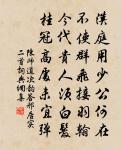 漢庭用少公何在
不使群飛接羽翰
今代貴人須白髮
挂冠高處未宜彈
陳師道次韵答邢居實
二首詞典網集